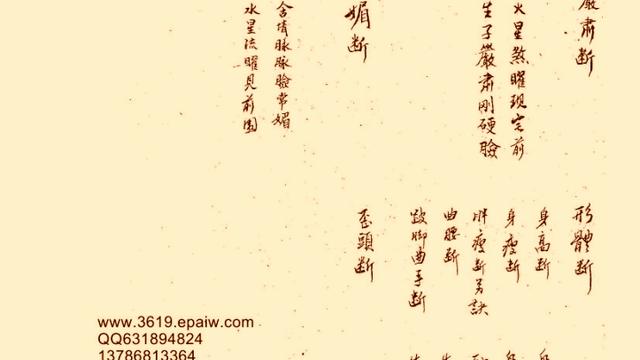 嚴肅断
火星煞曜現宅前
生子嚴肅刚硬臉
媚断
含情脉脉臉常媚
水星流曜見前園
形體断
身高断
身瘦断
胖瘦断另訣
曲腰断
跛脚曲手断
歪頭断
www.3619.epaiw.com
QQ631894824
13786813364